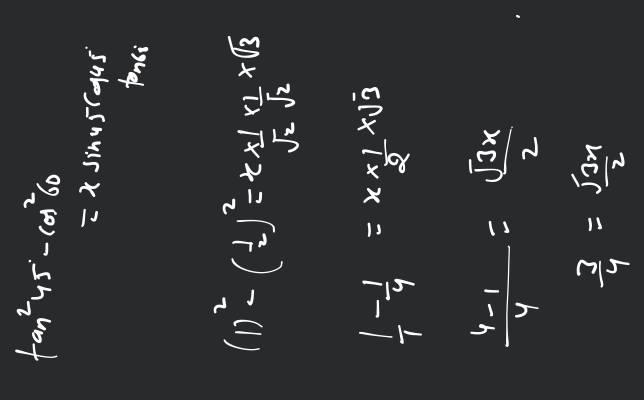 tan²45 - cos²60
= x sin45 cos45 tan60
(1)² - (1/2)² = x × 1/√2 × 1/√2 × √3
1/1 - 1/4 = x × 1/2 × √3
4-1/4 = √3x/2
3/4 = √3x/2